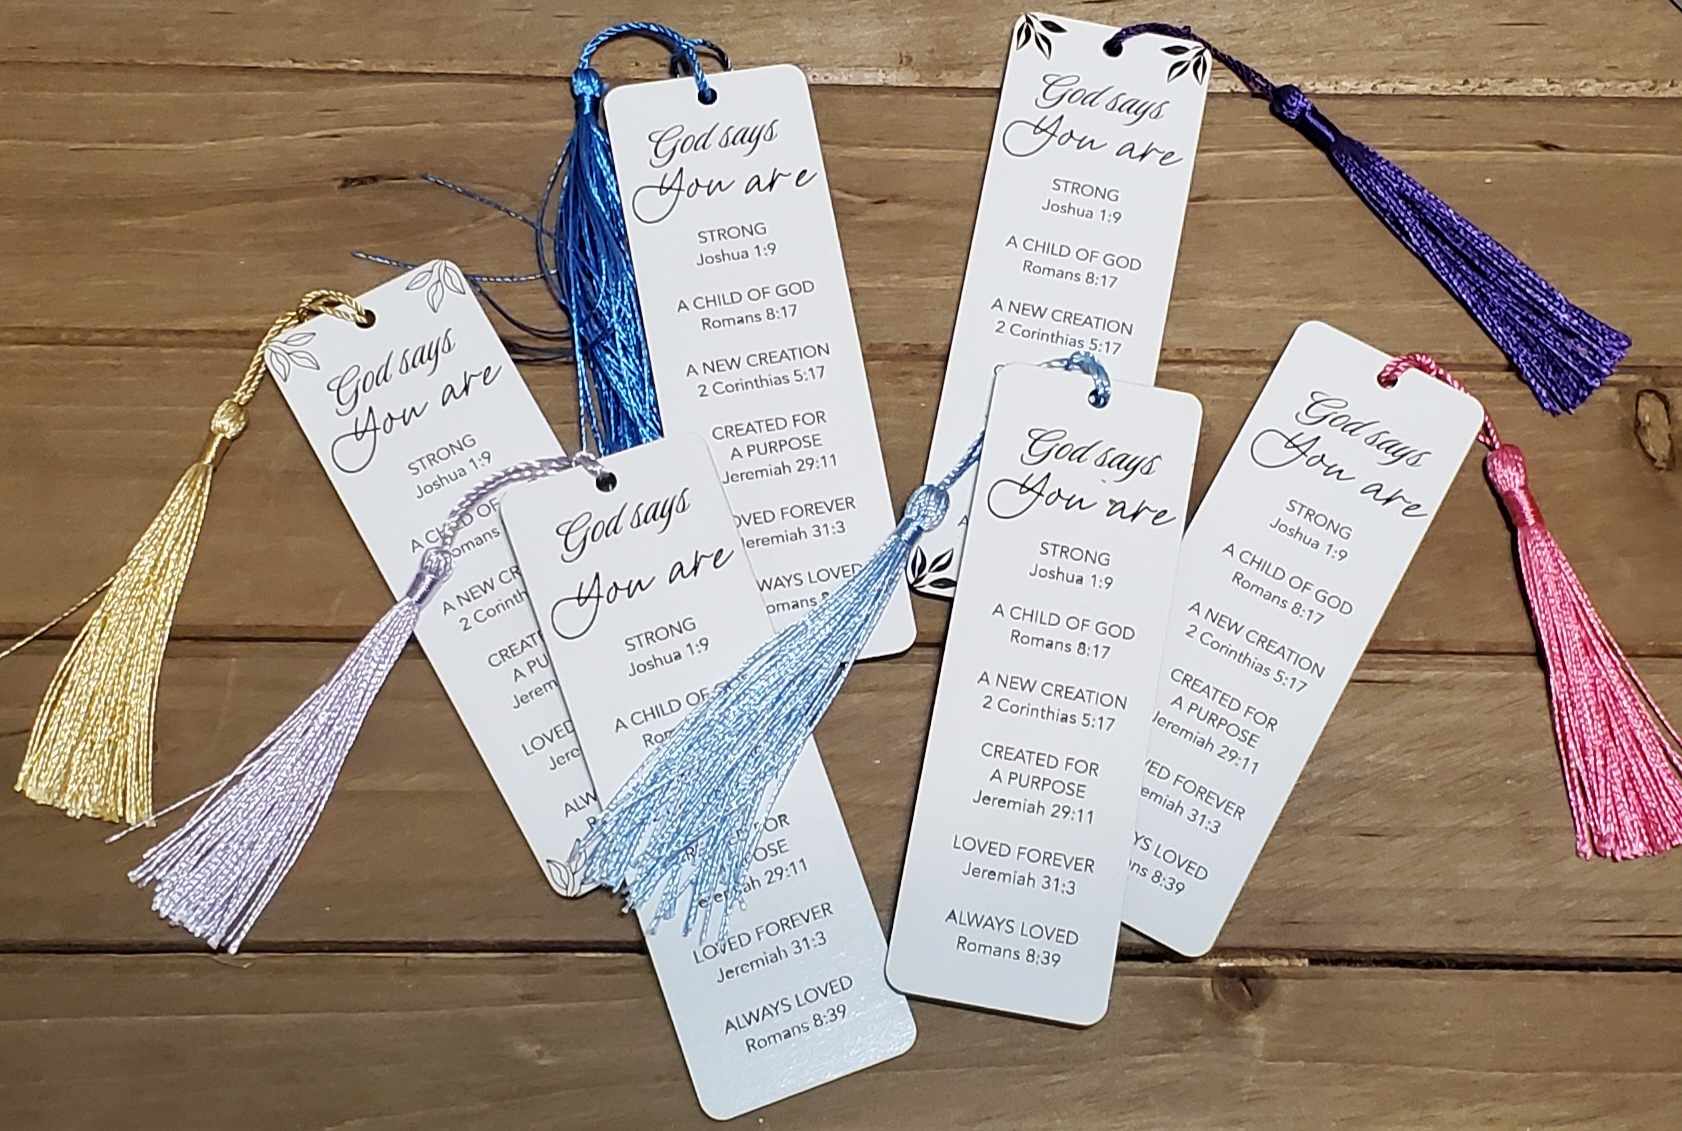 God says
You are
STRONG
Joshua 1:9
A CHILD OF GOD
Romans 8:17
A NEW CREATION
2 Corinthians 5:17
CREATED FOR
A PURPOSE
Jeremiah 29:11
OVED FOREVER
Jeremiah 31:3
WAYS LOVED
omans 8
God says
You are
STRONG
Joshua 1:9
A CHILD OF GOD
Romans 8:17
A NEW CREATION
2 Corinthians 5:17
God says
You are
STRONG
Joshua 1:9
A CHILD OF
omans
A NEW CR
2 Corinth
CREAT
A PU
Jerem
LOVED
Jere
ALW
God says
You are
STRONG
Joshua 1:9
A CHILD OF
Rom
FOR
OSE
29:11
LOVED FOREVER
Jeremiah 31:3
ALWAYS LOVED
Romans 8:39
God says
You are
STRONG
Joshua 1:9
A CHILD OF GOD
Romans 8:17
A NEW CREATION
2 Corinthians 5:17
CREATED FOR
A PURPOSE
Jeremiah 29:11
LOVED FOREVER
Jeremiah 31:3
ALWAYS LOVED
Romans 8:39
God says
You are
STRONG
Joshua 1:9
A CHILD OF GOD
Romans 8:17
A NEW CREATION
2 Corinthians 5:17
CREATED FOR
A PURPOSE
Jeremiah 29:11
VED FOREVER
emiah 31:3
YS LOVED
ns 8:39